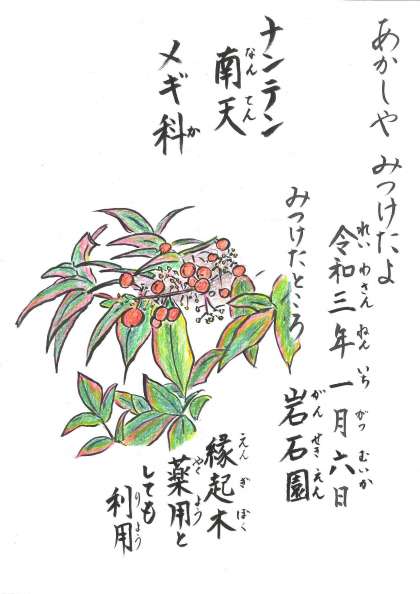 あかしや みつけたよ
れいわさんねんいちがつむいか
令和三年一月六日
みつけたところ
がんせきえん
岩石園
ナンテン
なんてん
南天
メギ科
か
えんぎぼく
縁起木
やくよう
薬用と
しても
りよう
利用